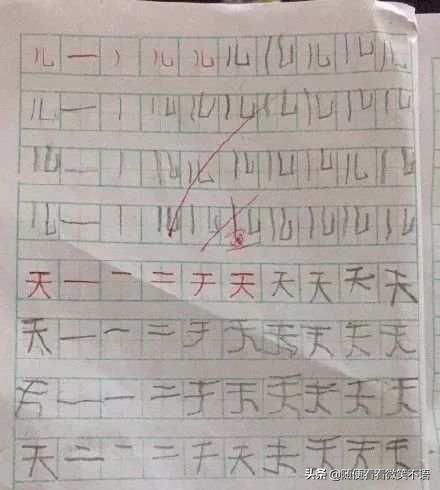 儿 一 丿 儿 儿 儿 儿 儿 儿 儿
儿 一 丨 儿 儿 儿 儿 儿 儿 儿
儿 一 丨 儿 儿 儿 儿 儿 儿 儿
儿 一 丨 儿 儿 儿 儿 儿 儿 儿
天 一 一 二 天 天 天 天 天
天 一 一 二 天 天 天 天
一 一 二 天 天 天 天
天 二 一 二 天 天 天 天
头条 @随便看看微笑不语